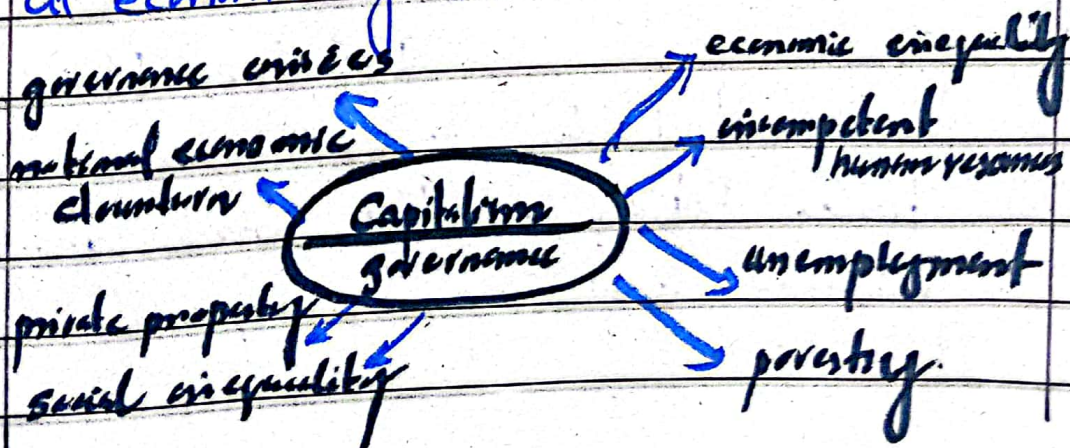 governance crisies
national economic
downturn
Capitalism
governance
private property
social inequality
economic inequality
incompetent
human resources
unemployment
poverty.